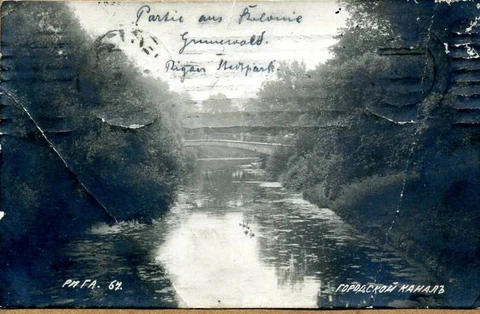 Partie aus Kolonie
Grunewald.
Rigaer Stadtpark
РИГА. 61.
ГОРОДСКОЙ КАНАЛЪ